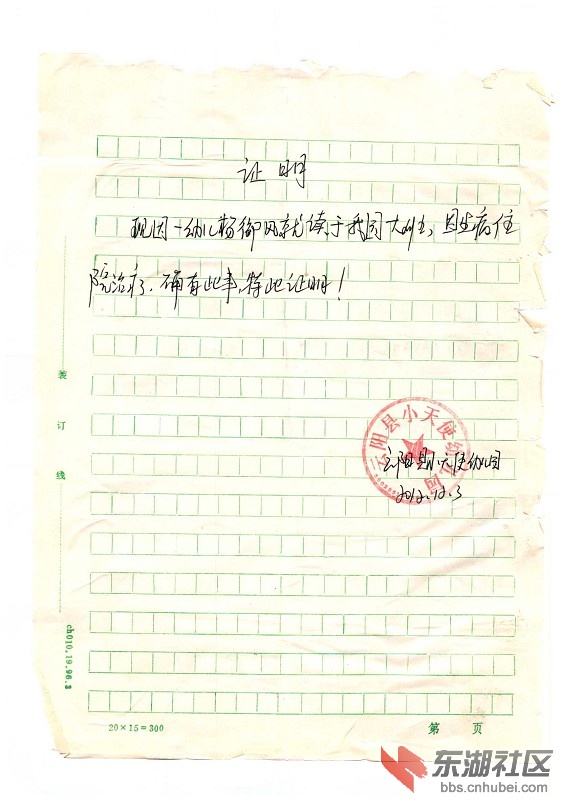 证明
现因一幼儿杨御风就读于我园大班,因生病住
院治疗.确有此事,特此证明!
云阳县小天使幼儿园
云阳县小天使幼儿园
2012.12.3
装订线
ch010.19.96.3
20×15=300
第 页
东湖社区
bbs.cnhubei.com